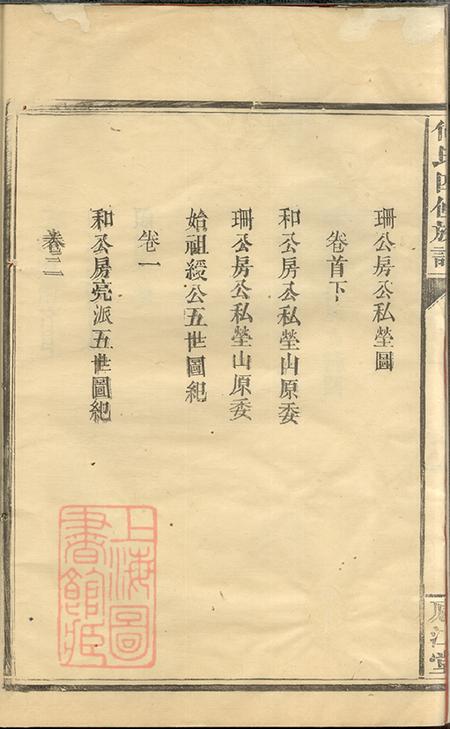 何氏四修族
廬江堂
珊公房公私塋圖
卷首下
和公房公私塋山原委
珊公房公私塋山原委
始祖綬公五世圖紀
卷一
和公房亮派五世圖紀
卷二
上海圖
書館藏